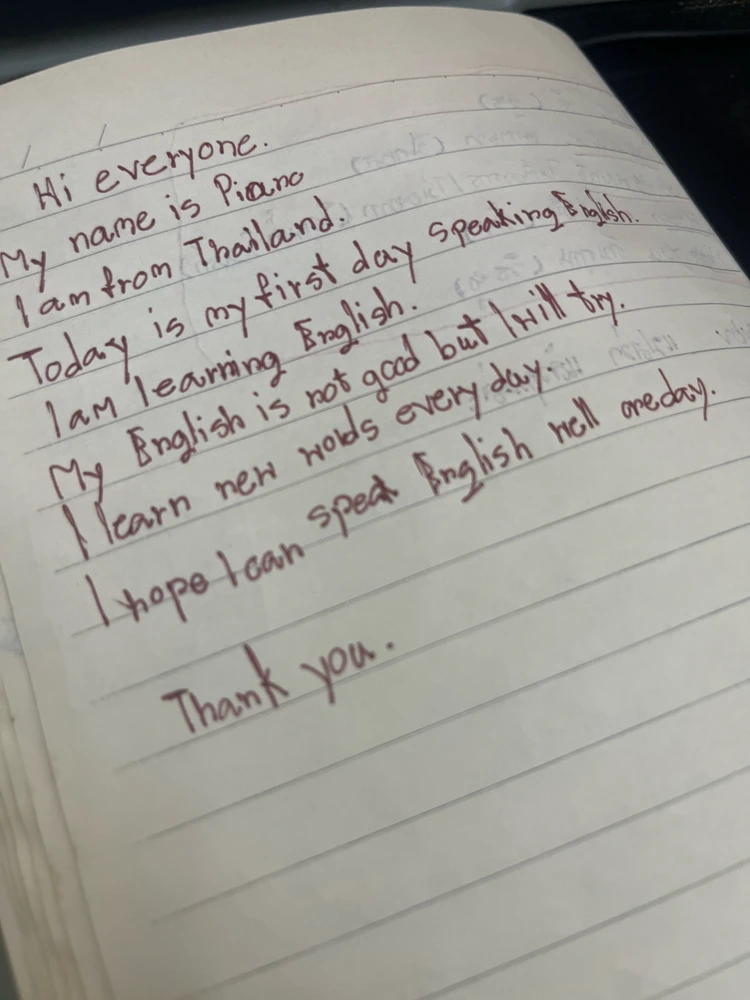 Hi everyone.
My name is Piano
I am from Thailand.
Today is my first day speaking English.
I am learning English.
My English is not good but I will try.
I learn new wolds every day.
I hope I can speak English well oneday.
Thank you.